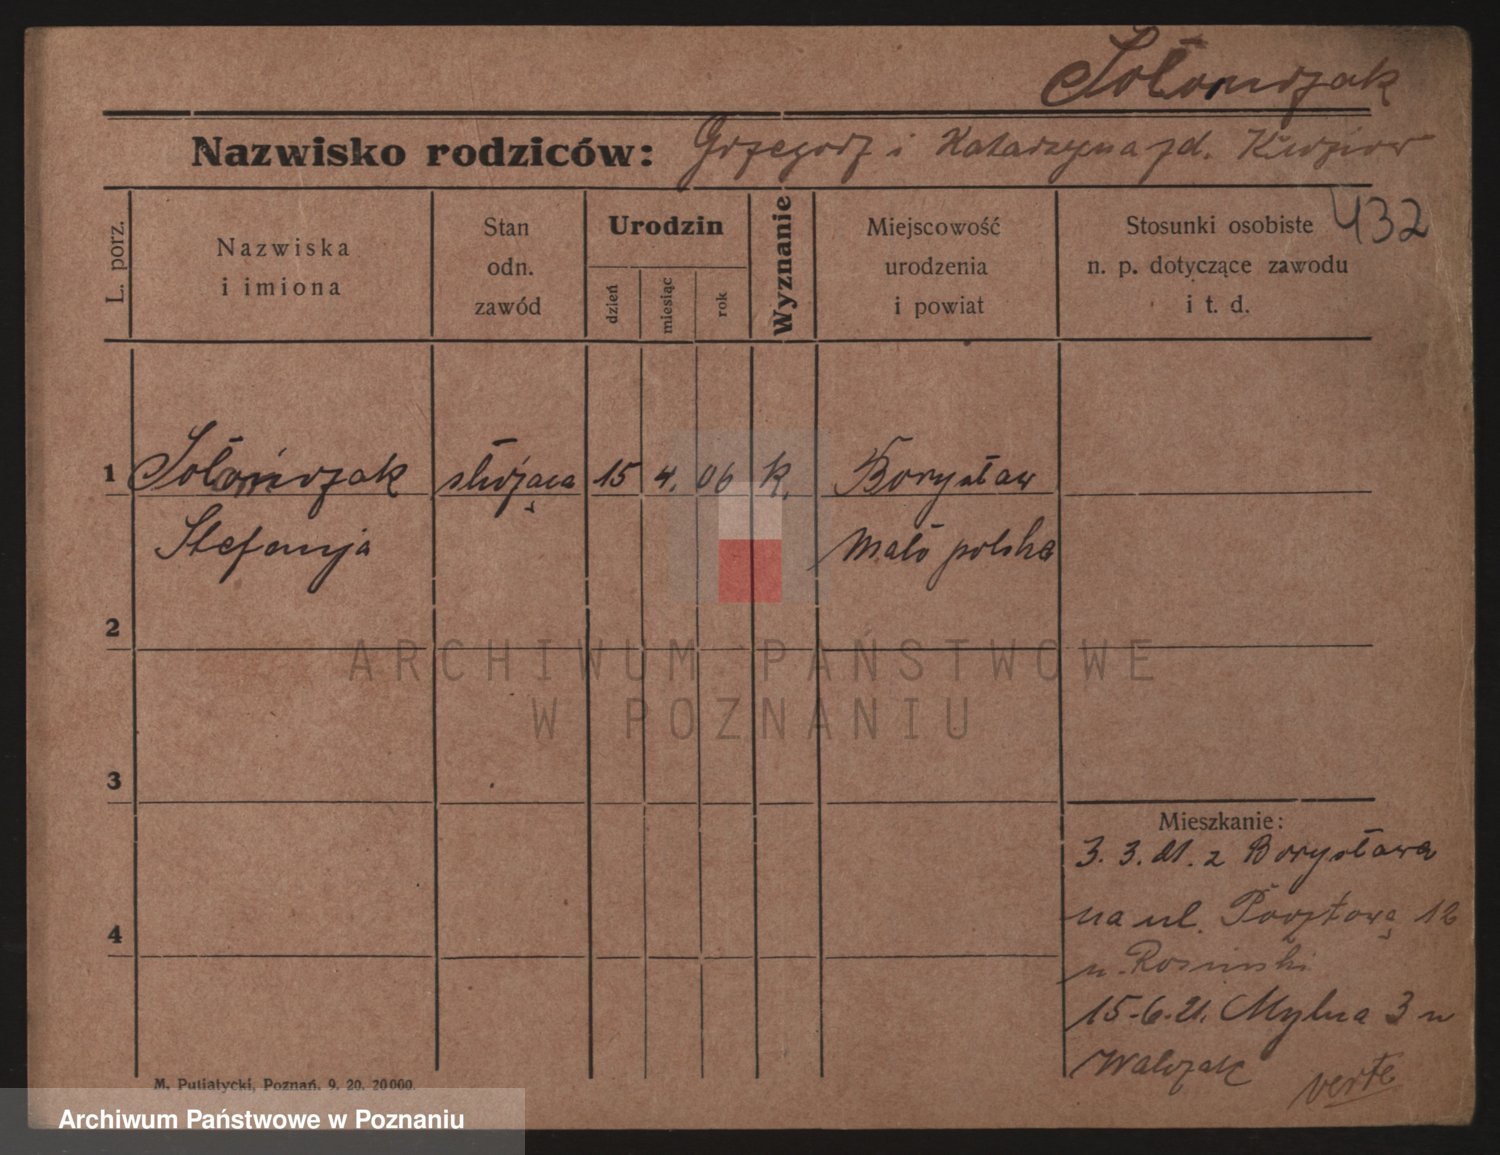 Sołomczak
Nazwisko rodziców: Grzegorz i Katarzyna zd.
432
L. porz.
Nazwiska
i imiona
Stan
odn.
zawód
Urodzin
dzień
miesiąc
rok
Wyznanie
Miejscowość
urodzenia
i powiat
Stosunki osobiste
n. p. dotyczące zawodu
i t. d.
1 służąca 15 4. 06 k. Borysław
Stefanja Mało polska
2
3
4
Mieszkanie:
3. 3. 21. z Borysława
na ul. Pocztową 12
u. Rosinski
15-6-21. Mylna 3 u
Walczak
verte
M. Putiatycki, Poznań. 9. 20. 20000.
ARCHIWUM PAŃSTWOWE
W POZNANIU
Archiwum Państwowe w Poznaniu